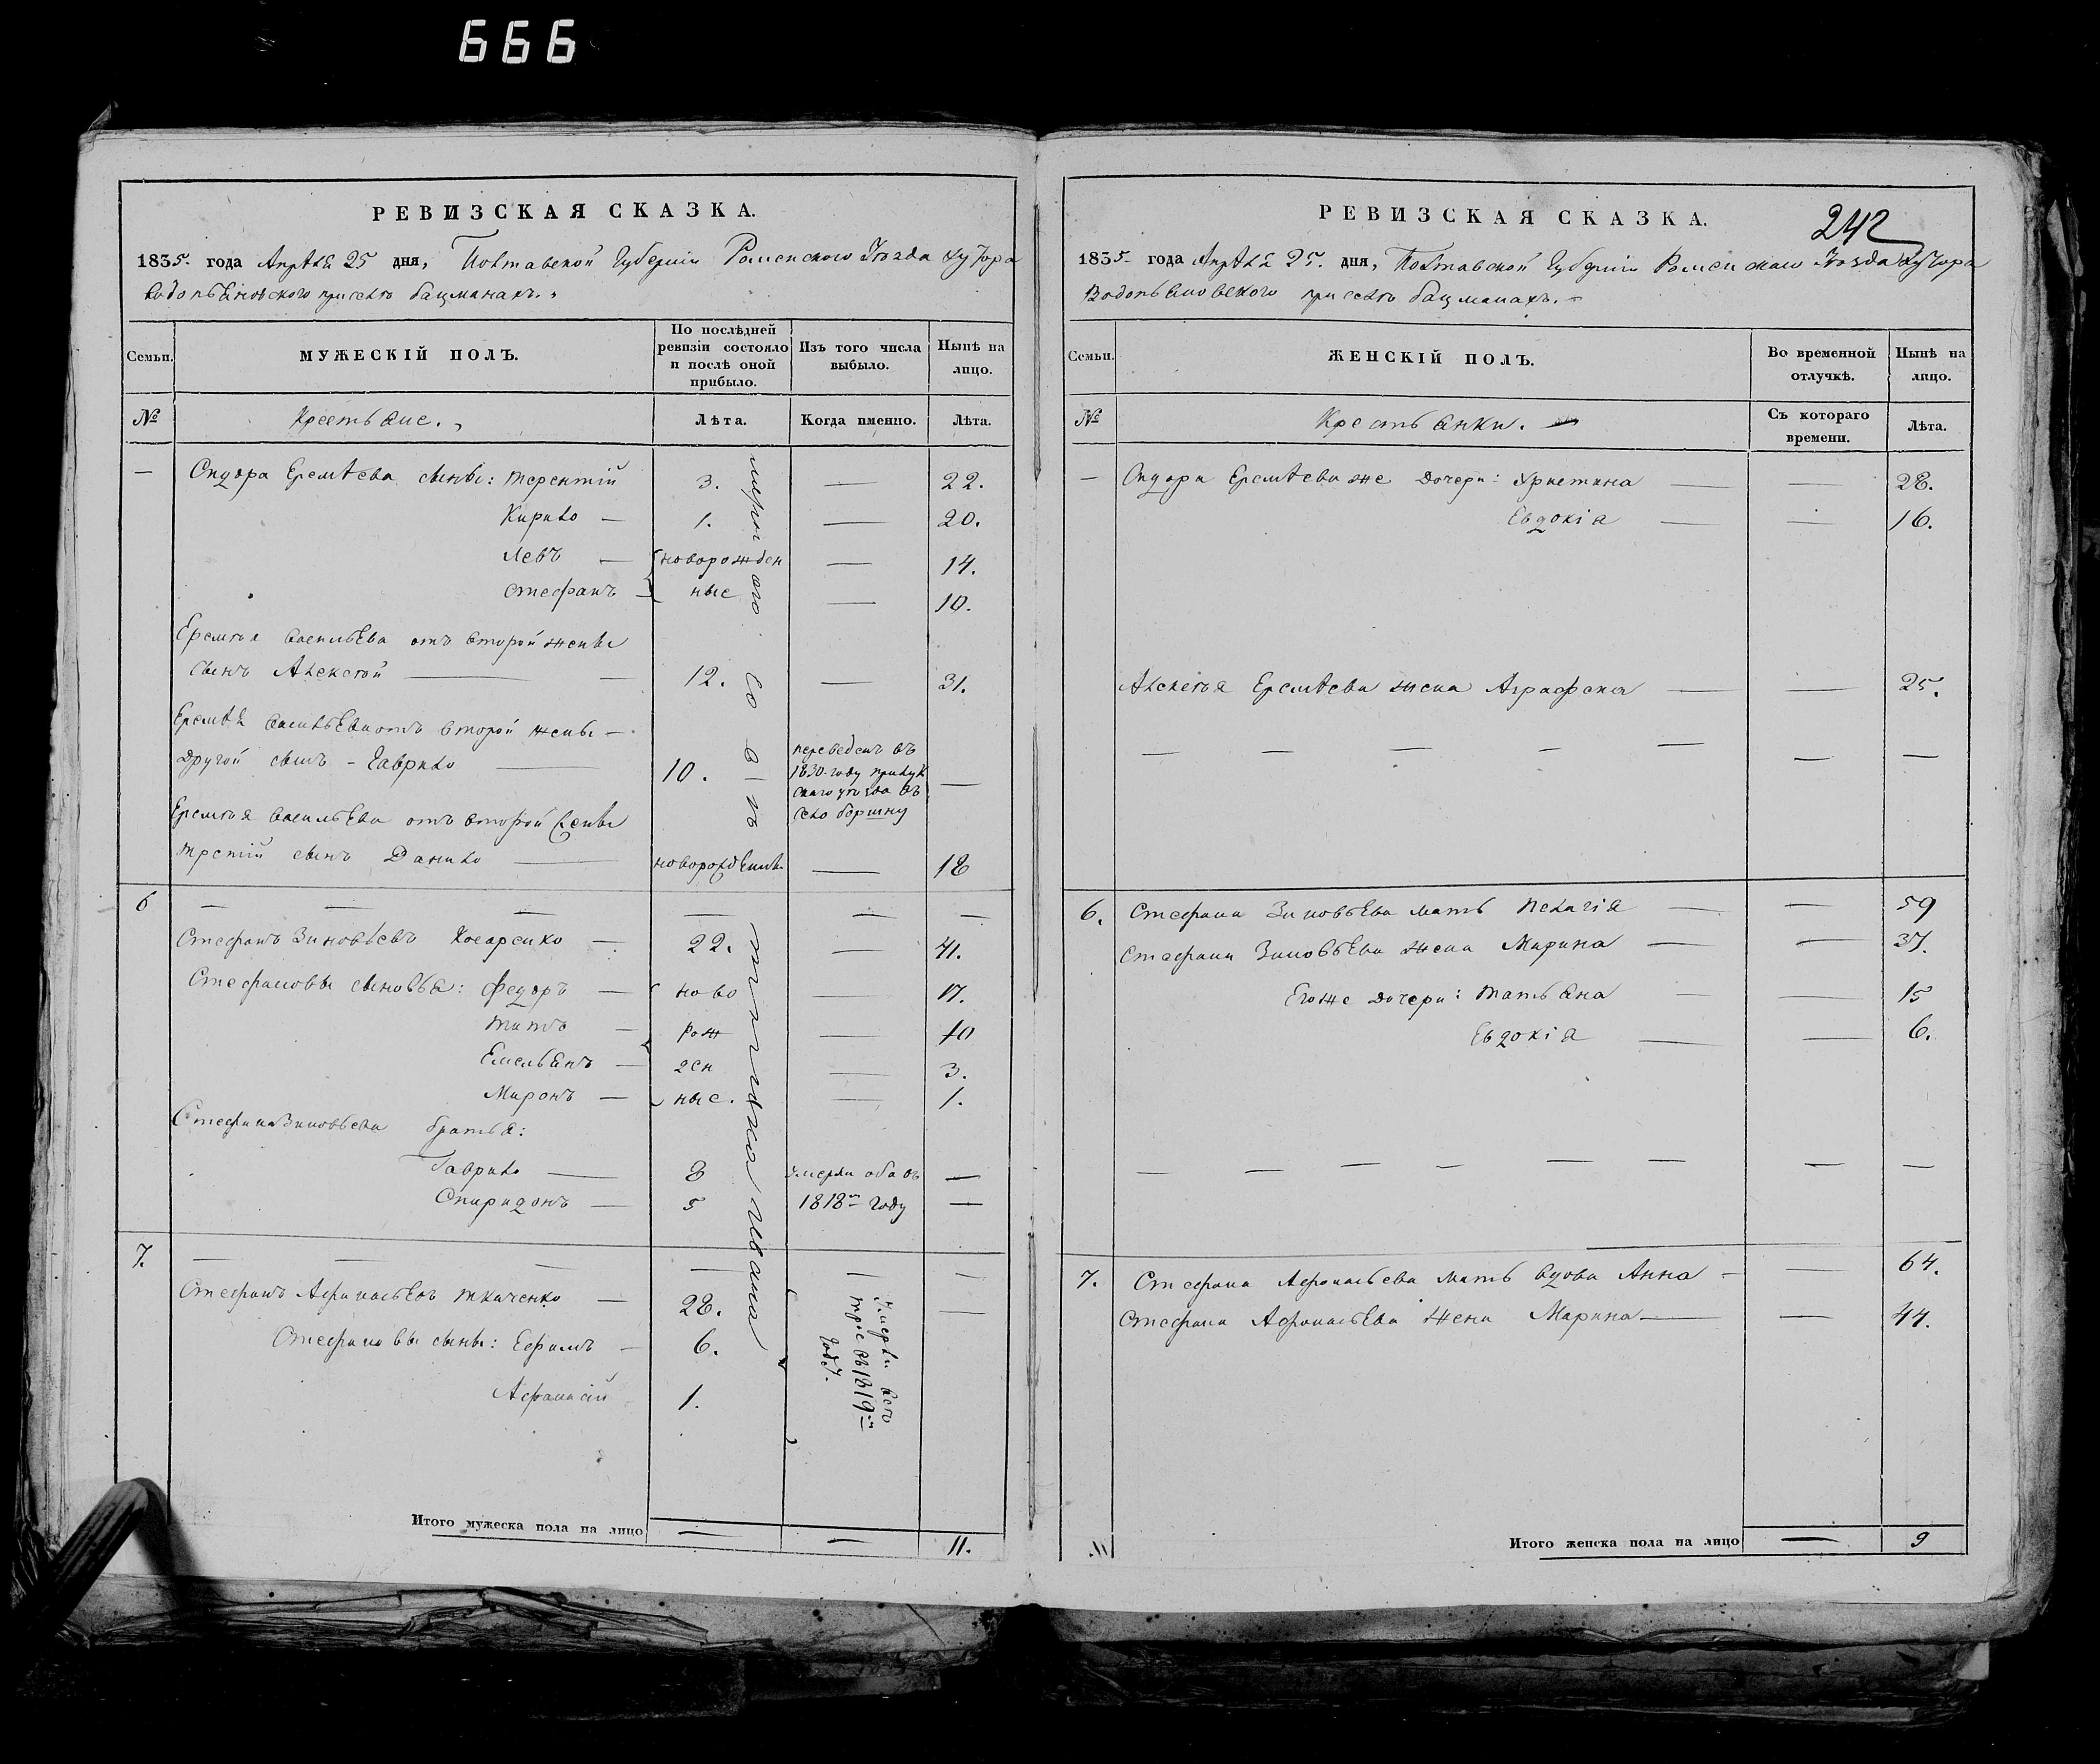 666
РЕВИЗСКАЯ СКАЗКА.
1835. года Апрѣля 25 дня, Полтавской Губерніи Роменского Уѣзда хутора
Водопьяновского при селѣ Бацманахъ.
Семьи.
МУЖЕСКІЙ ПОЛЪ.
По послѣдней ревизіи состояло и послѣ оной прибыло.
Изъ того числа выбыло.
Нынѣ на лицо.
№
Крестьяне.
Лѣта.
Когда именно.
Лѣта.
— Сидора Еремѣева сыны: Терентій 3. — 22.
Кирило — 1. — 20.
Левъ — новорожден — 14.
Стефанъ — ные — 10.
Еремѣя Васильева отъ второй жены
сынъ Алексѣй — 12. — 31.
Еремѣя Васильева отъ второй жены —
другой сынъ - Гаврило — 10. переведенъ въ 1830. году Прилук скаго уѣзда въ село —
Еремѣя Васильева отъ второй жены
третій сынъ Данило — новорожденъ — 18
6 — — — — — —
Стефанъ Зиновьевъ Косаренко — 22. — 41.
Стефановы сыновья: Федоръ — ново — 17.
Титъ — рож — 10
Емельянъ — ден — 3.
Миронъ — ные. — 1.
Стефана Зиновьева братья:
Гаврило — 8 умерли оба въ —
Спиридонъ — 5 1818м году —
7. — — — — — —
Стефанъ Афанасьевъ Ткаченко — 28. —
Стефановы сыны: Ефимъ — 6.
Афанасій 1.
Умерли все
трое въ 1819м
годѣ.
Итого мужеска пола на лицо — — 11.
РЕВИЗСКАЯ СКАЗКА.
242
1835 года Апрѣля 25. дня, Полтавской Губерніи Роменскаго Уѣзда хутора
Водопьяновского при селѣ Бацманахъ. —
Семьи.
ЖЕНСКІЙ ПОЛЪ.
Во временной отлучкѣ.
Нынѣ на лицо.
№
Крестьянки. —
Съ котораго времени.
Лѣта.
— Сидора Еремѣева же дочери: Христина — — 28.
Евдокія — — 16.
Алексѣя Еремѣева жена Аграфена — — 25.
— — — — — — —
6. Стефана Зиновьева мать Пелагія — — 59
Стефана Зиновьева жена Марина — — 37.
Его же дочери: Татьяна — — 15
Евдокія — — 6.
— — — — — — — —
7. Стефана Афонасьева мать вдова Анна — — 64.
Стефана Афонасьева жена Марина — — 44.
Итого женска пола на лицо — 9